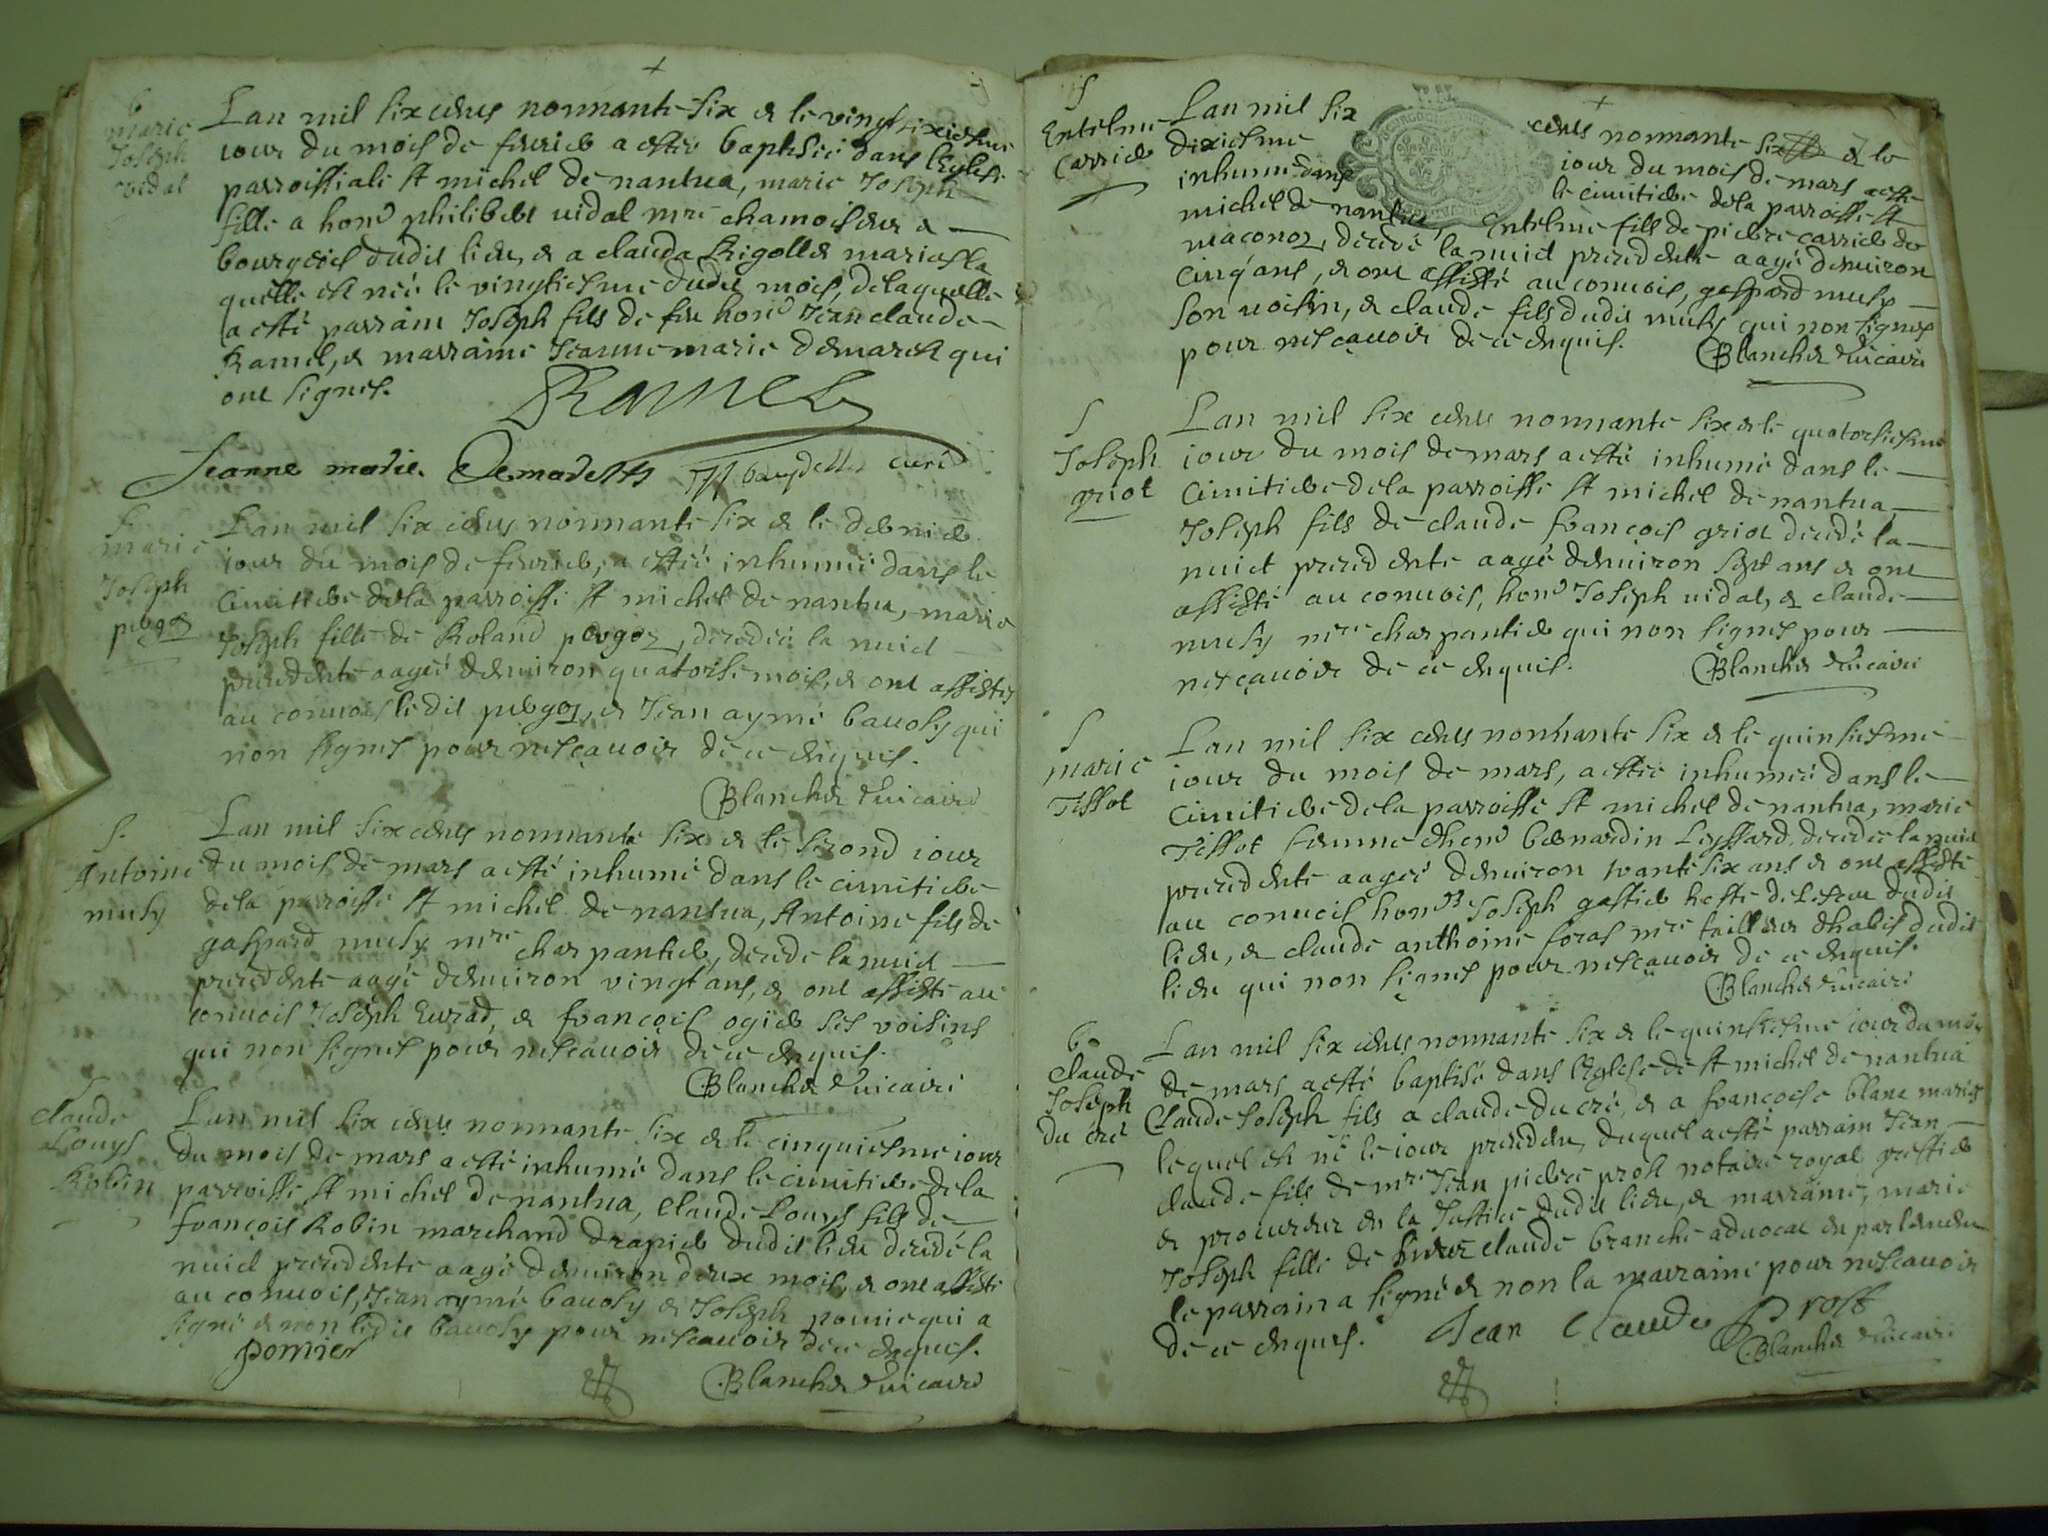 b
marie
Joseph
vidal
Lan mil six cens nonnante six & le vingt sixiesme
iour du mois de feurier a estée baptisée dans leglise
parroissiale st michel de nantua, marie Joseph
fille a hono philibert uidal mre chamoiseur &
bourgeois dudit lieu, & a clauda Rigollet mariés la
quelle est née le vingtiesme dudit mois, de laquelle
a esté parrain Joseph fils de feu hono Jean claude
Ramel, & marraine Jeanne marie demarest qui
ont signes.
Ramel
Jeanne marie Demarests curé
S
marie
Joseph
Lan mil six cens nonnante six & le dernier
iour du mois de feurier, a estée inhumée dans le
Cimitiere dela parroisse st michel de nantua, marie
Joseph fille de Roland decedée la nuict
precedente aagée denuiron quatorse mois, & ont assistes
au conuois ledit & Jean aymé bauosy qui
non signes pour nesçauoir de ce enquis.
Blanchet Vicaire
S.
Antoine
musy
Lan mil six cens nonnante six & le second iour
du mois de mars a esté inhumé dans le cimitiere
dela parroisse st michel de nantua, Antoine fils de
gaspard musy mre charpantier, decede la nuict
precedente aagé denuiron vingt ans, & ont assisté au
conuois Joseph & françois ogier ses voisins
qui non signes pour nescauoir de ce enquis.
Blanchet Vicaire
S
claude
Louys
Robin
Lan mil six cens nonnante six & le cinquiesme iour
du mois de mars a esté inhumé dans le cimitiere dela
parroisse st michel de nantua, Claude Louys fils de
françois Robin marchand drapier dudit lieu decedé la
nuict precedente aagé denuiron deux mois, & ont assisté
au conuois, Jean aymé bauosy & Joseph pomie qui a
signé & non ledit bauosy pour nescauoir de ce enquis.
pomier
Blanchet Vicaire
S
Entelme
Carrier
Lan mil six cens nonnante six & le
dixiesme iour du mois de mars a esté
inhumé dans le cimitiere dela parroisse st
michel de nantua Entelme fils de pierre carrier de
maconoz, decedé la nuict precedente aagé denuiron
cinq ans, & ont assisté au conuois, gaspard musy
son uoisin, & claude fils dudit musy qui non signes
pour nesçauoir de ce enquis.
Blanchet Vicaire
S
Joseph
griot
Lan mil six cens nonnante six & le quatorsiesme
iour du mois de mars a esté inhumé dans le
Cimitiere dela parroisse st michel de nantua
Joseph fils de claude françois griot decedé la
nuict precedente aagé denuiron sept ans & ont
assisté au conuois, hono Joseph uidal, & claude
musy mre charpantier qui non signes pour
nesçauoir de ce enquis.
Blanchet Vicaire
S
marie
Tissot
Lan mil six cens nonnante six & le quinsiesme
iour du mois de mars, a estée inhumée dans le
Cimitiere dela parroisse st michel de nantua, marie
Tissot femme dhono bernardin Leyssard, decedée la nuict
precedente aagée denuiron trante six ans & ont assisté
au conuois Joseph gastier dudit
lieu, & claude anthoine foras mre tailleur dhabis dudit
lieu qui non signes pour nescauoir de ce enquis.
Blanchet Vicaire
b
claude
Joseph
du cré
Lan mil six cens nonnante six & le quinsiesme iour du mois
de mars a esté baptisé dans leglise de st michel de nantua
Claude Joseph fils a claude du cré, & a françoise blanc mariés
lequel est né le iour precedent, duquel a esté parrain Jean
claude fils de mre Jean pierre prost notaire royal greffier
& procureur en la Justice dudit lieu, & marraine, marie
Joseph fille de sieur claude branche aduocat en parlement
le parrain a signé & non la marraine pour nescauoir
de ce enquis.
Jean Claude Prost
Blanchet Vicaire